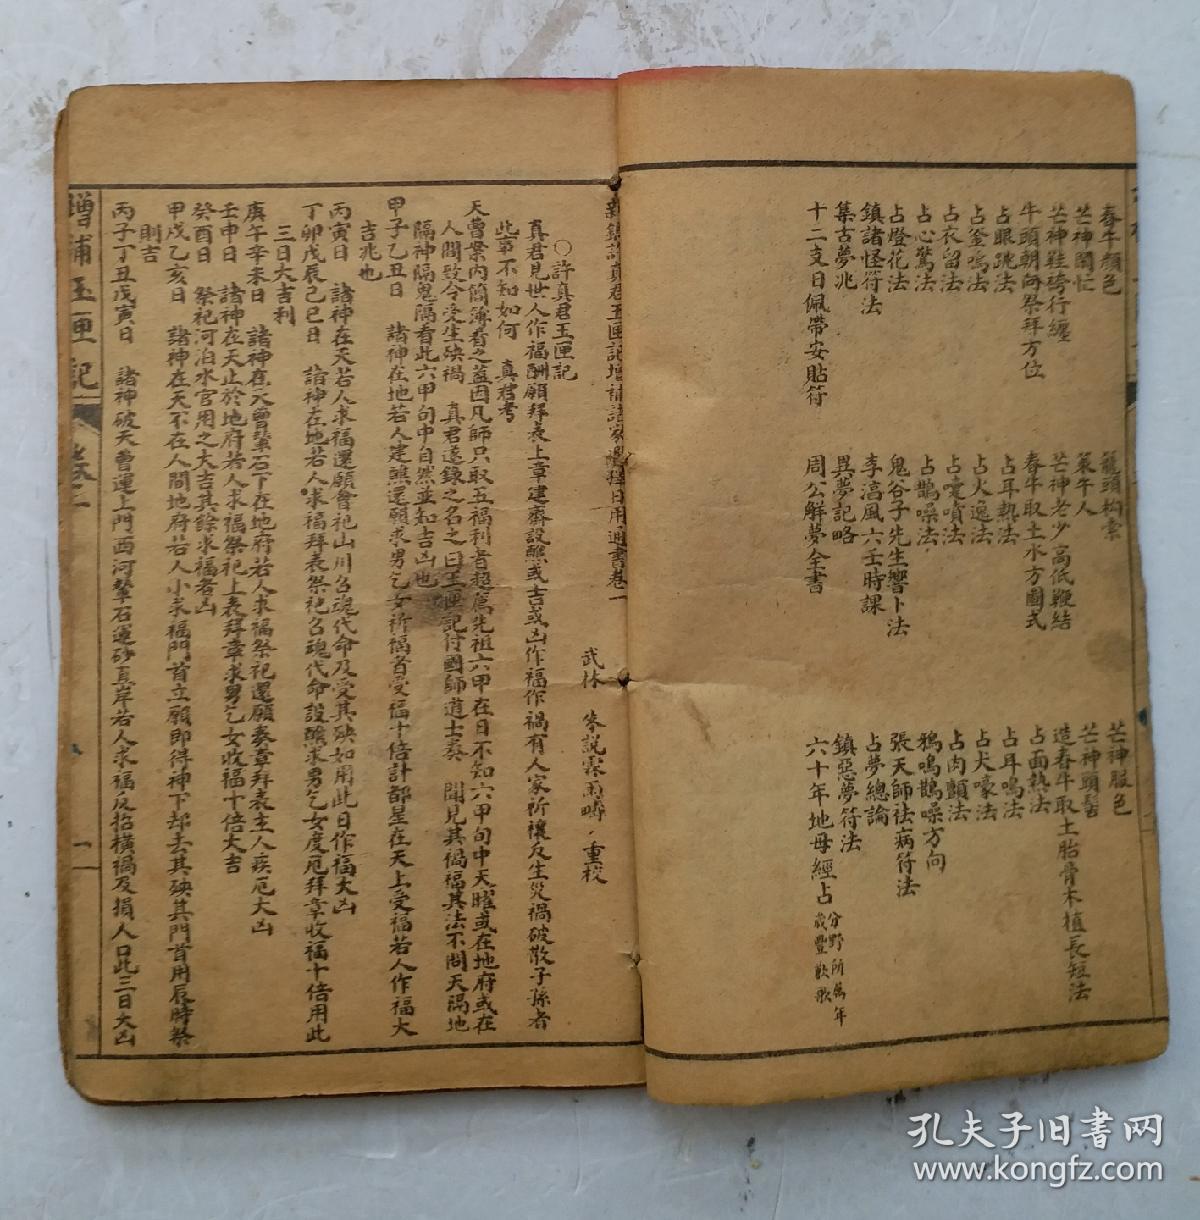 春牛顏色
籠頭构索
芒神服色
芒神閒忙
策牛人
芒神頭髻
芒神鞋袴行纏
芒神老少高低鞭結
造春牛取土胎骨木植長短法
牛頭朝向祭拜方位
春牛取土水方圖式
占面熱法
占眼跳法
占耳熱法
占耳鳴法
占釜鳴法
占火逸法
占犬嚎法
占衣留法
占嚏噴法
占肉顫法
占心驚法
占鵲噪法
鴉鳴鵲噪方向
占燈花法
鬼谷子先生響卜法
張天師祛病符法
鎮諸怪符法
李淳風六壬時課
占夢總論
集古夢兆
異夢記略
鎮惡夢符法
十二支日佩帶安貼符
周公解夢全書
六十年地母經占 分野所屬年歲豐歉歌
武林 朱說霖雨疇 重校
○許真君玉匣記
真君見世人作福酬願拜表上章建齋設醮或吉或凶作福作禍有人家所禳反生災禍破散子孫者
此事不知如何 真君考
天曹案內簡簿看之蓋因凡師只取五福利者超薦先祖六甲在日不知六甲旬中天曜或在地府或在
人間致令受生殃禍 真君遂錄之名之曰玉匣記付國師道士奏 聞見其禍福其法不問天隔地
隔神隔鬼隔看此六甲旬中自然並知吉凶也
甲子乙丑日 諸神在地若人建醮還願求男乞女祈福者受福十倍計都星在天上受福若人作福大
吉兆也
丙寅日 諸神在天若人求福還願會祀山川召魂代命及受其殃如用此日作福大凶
丁卯戊辰己巳日 諸神在地若人求福拜表祭祀召魂代命設醮求男乞女度厄拜章收福十倍用此
三日大吉利
庚午辛未日 諸神在天曹輦石下在地府若人求福祭祀還願奏章拜表主人疾厄大凶
壬申日 諸神在天止於地府若人求福祭祀上表拜章求男乞女收福十倍大吉
癸酉日 祭祀河泊水官用之大吉其餘求福者凶
甲戌乙亥日 諸神在天不在人間地府若人小求福門首立願即得神下却去其殃其門首用辰時祭
則吉
丙子丁丑戊寅日 諸神破天曹運上門西河輦石運砂直岸若人求福反招橫禍及損人口此三日大凶
增補玉匣記 卷上
孔夫子旧书网
www.kongfz.com